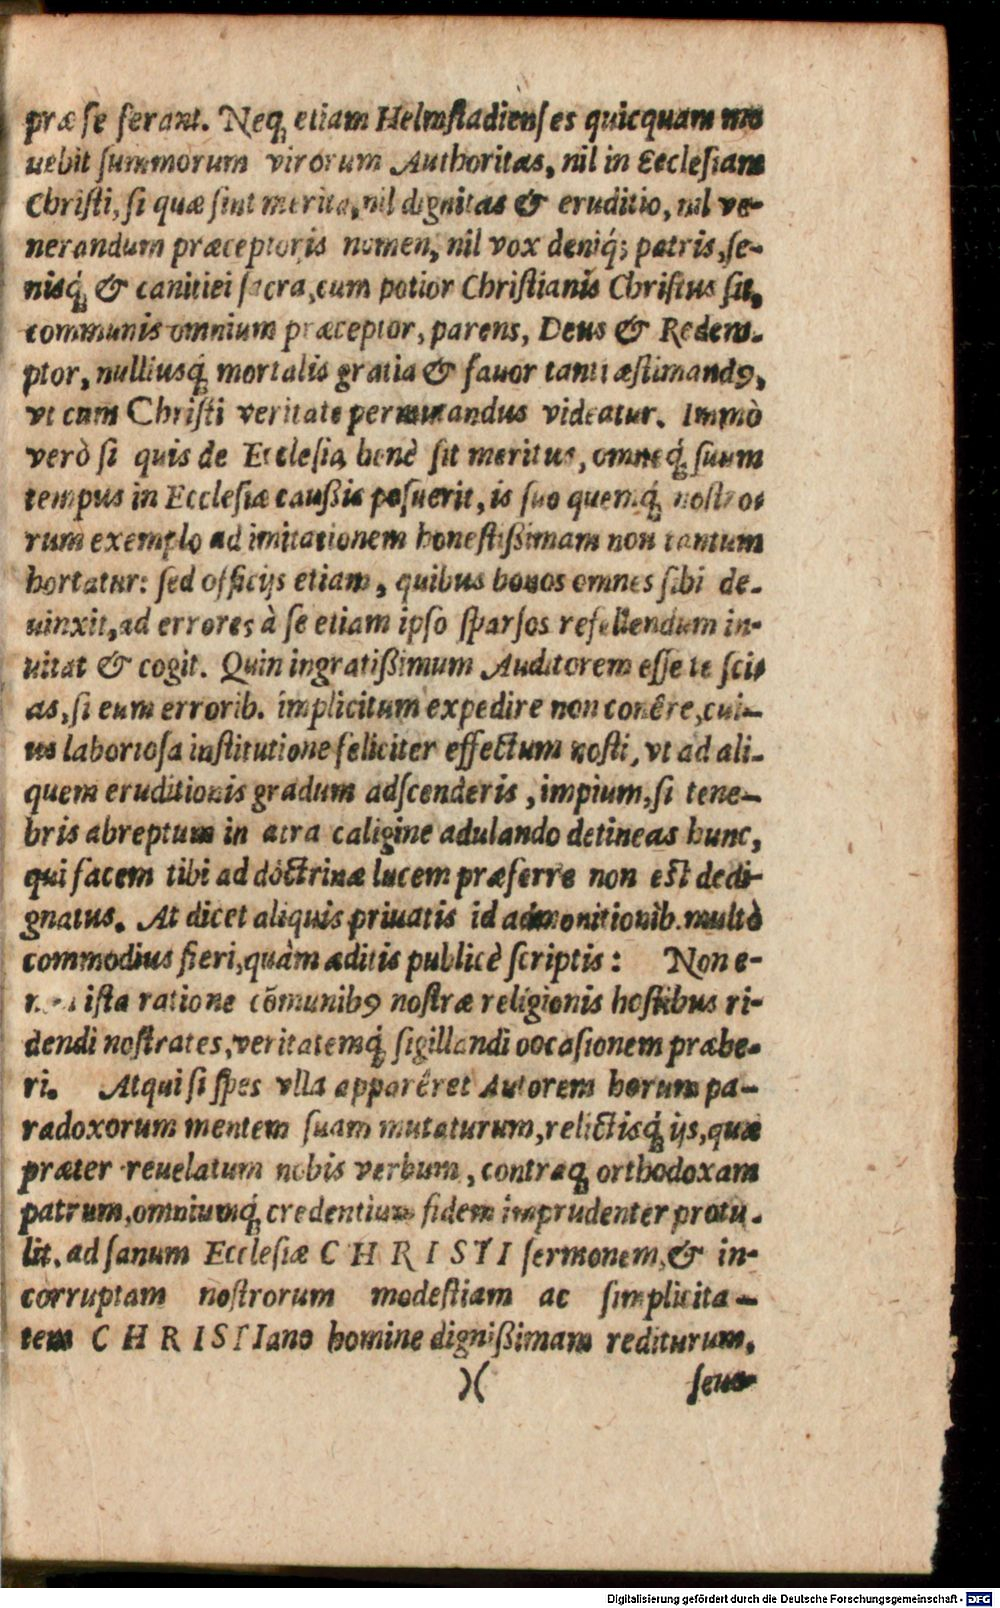 præ se ferant. Neq; etiam Helmstadienses quicquam mo
uebit summorum virorum Authoritas, nil in Ecclesiam
Christi, si quæ sint merita, nil dignitas & eruditio, nil ve-
nerandum præceptoris nomen, nil vox deniq; patris, se-
nisq́; & canitiei sacra, cum potior Christianis Christus sit,
communis omnium præceptor, parens, Deus & Redem-
ptor, nulliusq́; mortalis gratia & fauor tanti æstimandꝰ,
vt cum Christi veritate permutandus videatur. Immò
verò si quis de Ecclesia benè sit meritus, omneq́; suum
tempus in Ecclesiæ caußis posuerit, is suo quemq́; nostro
rum exemplo ad imitationem honestißimam non tantum
hortatur: sed officijs etiam, quibus bonos omnes sibi de-
uinxit, ad errores à se etiam ipso sparsos refellendum in-
uitat & cogit. Quin ingratißimum Auditorem esse te sci
as, si eum errorib. implicitum expedire non conêre, cui-
us laboriosa institutione feliciter effectum nosti, vt ad ali-
quem eruditionis gradum adscenderis, impium, si tene-
bris abreptum in atra caligine adulando detineas hunc,
qui facem tibi ad doctrinæ lucem præferre non est dedi-
gnatus. At dicet aliquis priuatis id admonitionib. multò
commodius fieri, quàm æditis publicè scriptis: Non e-
ista ratione cõmunibꝰ nostræ religionis hostibus ri-
dendi nostrates, veritatemq́; sigillandi occasionem præbe-
ri. Atqui si spes vlla apparêret Autorem horum pa-
radoxorum mentem suam mutaturum, relictisq́; ijs, quæ
præter reuelatum nobis verbum, contraq; orthodoxam
patrum, omniumq́; credentium fidem imprudenter protu-
lit, ad sanum Ecclesiæ CHRISTI sermonem, & in-
corruptam nostrorum modestiam ac simplicita-
tem CHRISTIano homine dignißimam rediturum,
)( seue
Digitalisierung gefördert durch die Deutsche Forschungsgemeinschaft - DFG